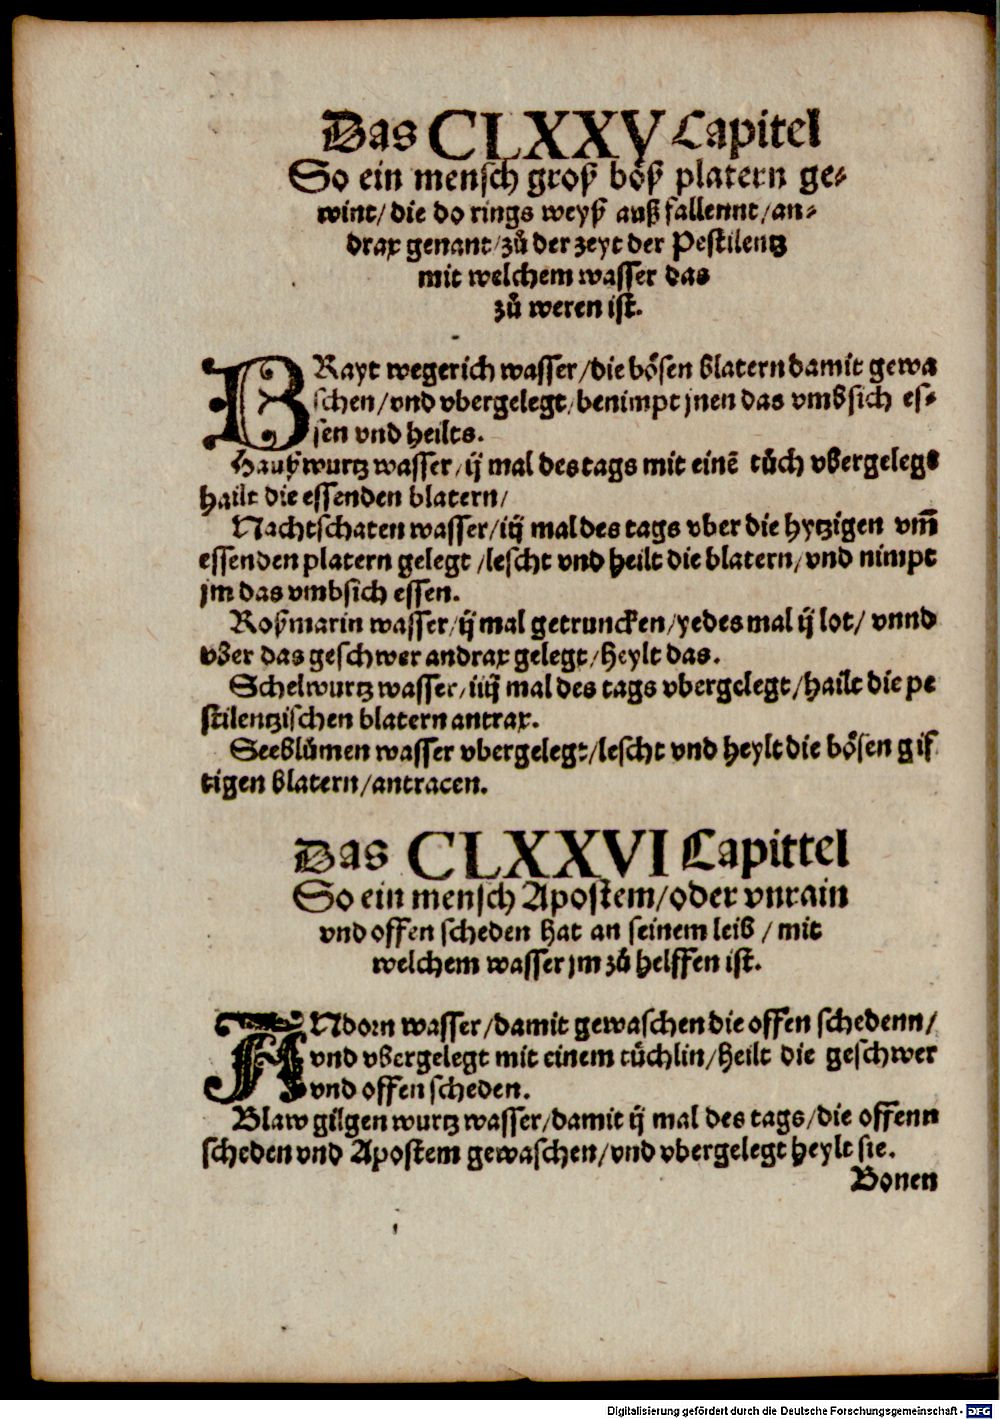 Das CLXXV Capitel
So ein mensch groß böß platern ge⸗
wint/ die do rings weyß auß fallennt/ an⸗
drax genant/ zů der zeyt der Pestilentz
mit welchem wasser das
zů weren ist.
BRayt wegerich wasser/ die bösen blatern damit gewa
schen/ vnd vbergelegt/ benimpt jnen das vmbsich es⸗
sen vnd heilts.
Haußwurtz wasser/ ij mal des tags mit einē tůch vbergelegt
hailt die essenden blatern/
Nachtschaten wasser/ iij mal des tags vber die hytzigen vm̄
essenden platern gelegt/ lescht vnd heilt die blatern/ vnd nimpt
jm das vmbsich essen.
Roßmarin wasser/ ij mal getruncken/ yedes mal ij lot/ vnnd
vber das geschwer andrax gelegt/ heylt das.
Schelwurtz wasser/ iiij mal des tags vbergelegt/ hailt die pe
stilentzischen blatern antrax.
Seeblůmen wasser vbergelegt/ lescht vnd heylt die bösen gif
tigen blatern/ antracen.
Das CLXXVI Capittel
So ein mensch Apostem/ oder vnrain
vnd offen scheden hat an seinem leib/ mit
welchem wasser jm zů helffen ist.
ANdorn wasser/ damit gewaschen die offen schedenn/
vnd vbergelegt mit einem tůchlin/ heilt die geschwer
vnd offen scheden.
Blaw gilgen wurtz wasser/ damit ij mal des tags/ die offenn
scheden vnd Apostem gewaschen/ vnd vbergelegt heylt sie.
Bonen
Digitalisierung gefördert durch die Deutsche Forschungsgemeinschaft - DFG